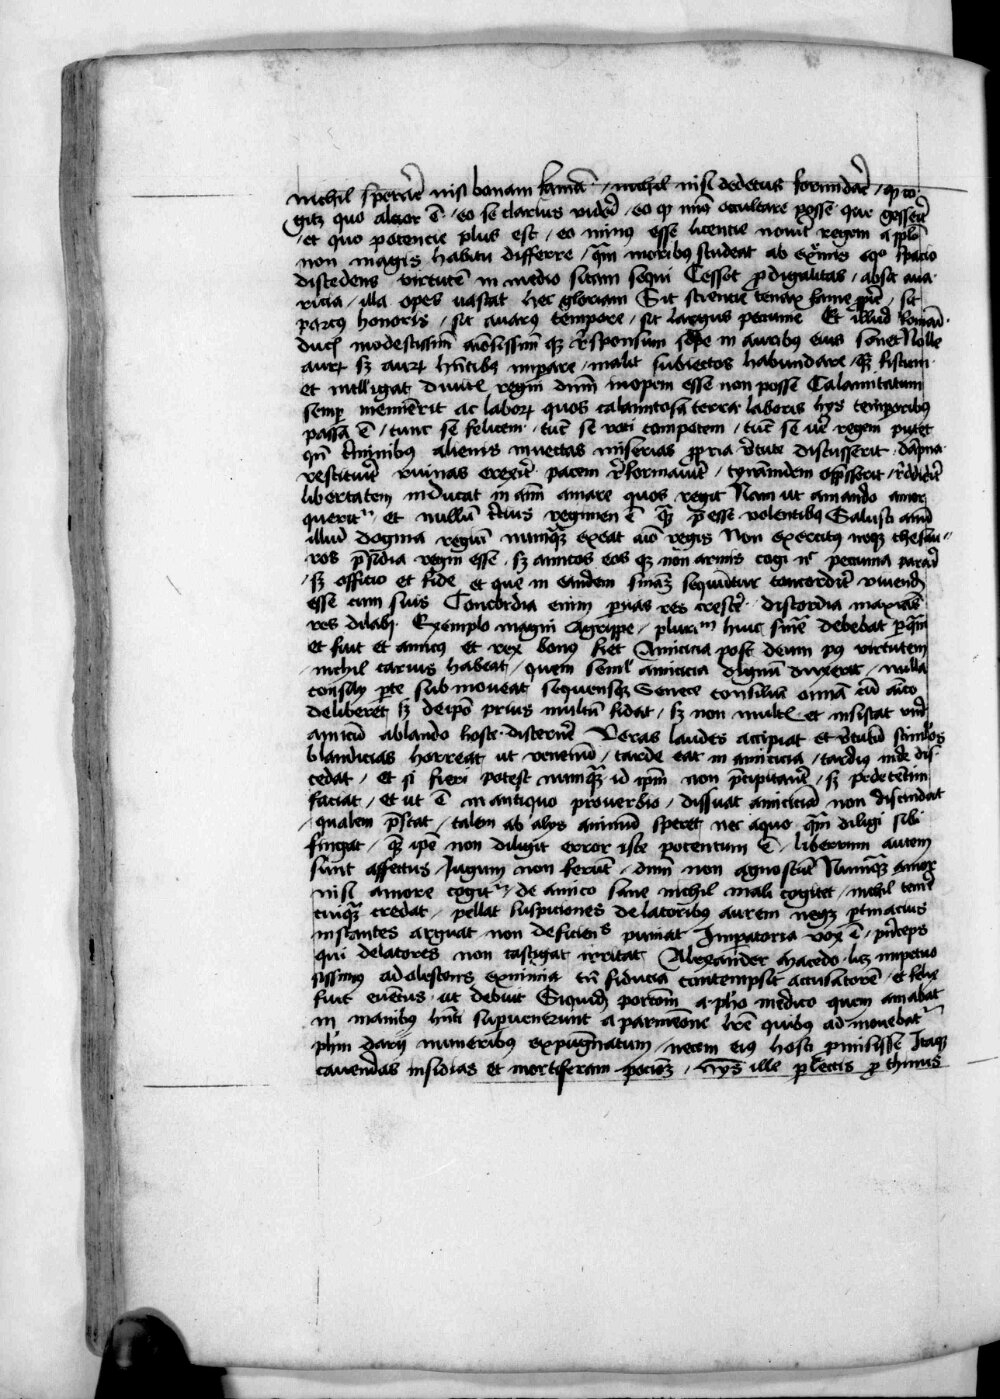 nichil sperare nisi bonam famā / nichil nisi dedecus formidare / q̄ co
gitz quo alcior ē / eo se clarius videri / eo q minus occultare posse que gesserit
/ et quo potencie plus est / eo minus esse licentie noverit regem a pplō
non magis habitu differre / q̄m moribus studeat ab extremis equo spacio
discedens virtutē in medio sitam sequi Cesset prodigalitas / absit ava
ricia / illa opes vastat hec gloriam Sit scientie tenax fame proprie / sit
parcus honoris / sit avarus tempore / sit largus pecunie Et illud Romani
ducis modestissimi aiosissimi q responsum sepe in auribus eius sonet Nolle
aurum sz aurum habentibus imperare / malit subiectos habundare qz fiscum
et intelligat divitis regni dominum inopem esse non posse Calamitatum
semper meminerit ac laborum quos calamitosa terra laboris hys temporibus
passa ē / tunc se felicem tūc se voti compotem / tūc se vere regem putet
cum terminibus alienis invectas miserias propria virtute discusserit dāpna
restituerit ruinas erexerit pacem reformaverit / tyrannidem oppresserit / reddiderit
libertatem inducat in animum amare quos regit Nam ut amando amor
queritur et nullū tutius regimen ē q̄m preesse volentibus Salusti autem
illud dogma regium numq̄ exeat aīo regis Non exercitus neqz thesau
ros presidia regni esse sz amicos eos qz non armis cogi nec pecunia parari
/ sz officio et fide et que in eandem sententiam sequuntur concorditer vivendum
esse cum suis Concordia enim parvas res crescere discordia maximas
res dilabi Exemplo magni Agrippe / plurimum huic sententie debebat per quam
et fuit et amicus et rex bonus fiet Amicicia post deum post virtutem
nichil carius habeat / quem semel amicicia dignum duxerat / nulla
consilii parte submoveat sequensqz Senece consilium omnia cum amico
deliberet sz de ipso prius multū fidat / sz non multis et insistat
amicū a blando hoste discernere Veras laudes accipiat et virtutum stimulos
blandicias horreat ut venenū / tarde eat in amicicia / tardius inde dis
cedat / et si fieri potest numq̄ id ipsum non precipitanter / sz pedetentim
faciat / et ut ē in antiquo proverbio / dissuat amiciciā non discindat
/ qualem prestat / talem ab alys animū speret nec a quo q̄m diligi sibi
fingat / quem ipse non diligit error iste potentum ē / liberrimi autem
sunt affectus / Iugum non ferunt / dominum non agnoscūt Numq̄ amor
nisi amore cogitur / de amico sane nichil mali cogitet / nichil temere
cuiq̄ credat / pellat suspiciones delatoribus aurem neqz pertinacius
instantes arguat non deficiens puniat Imperatoria vox ē / princeps
qui delatores non castigat irritat Alexander macedo lz impetuo
sissimus adolescens eximia tn̄ fiducia contempsit accusatorē / et felix
fuit eventus ut debuit Siquidem potionem a pho medico quem amabat
in manibus habenti supervenerunt a parmeone lrē quibus admonebatur
phm dary muneribus expugnatum / necem eius hosti promisisse Itaqz
cavendas insidias et mortiferam pocionem / ille perlectis